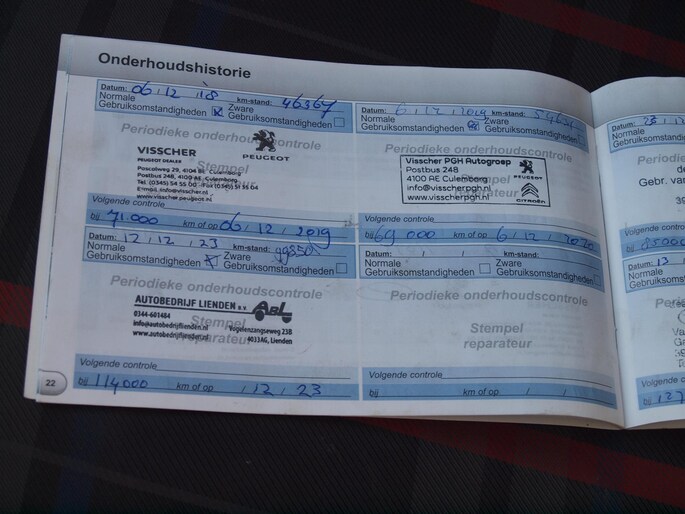 Onderhoudshistorie
Datum: 06 , 12 , '18 km-stand: 46367
Normale Zware
Gebruiksomstandigheden Gebruiksomstandigheden
Periodieke onderhoudscontrole
VISSCHER
PEUGEOT DEALER
PEUGEOT
Stempel
Postbus 248, 4100 AE Culemborg
Tel. (0345) 54 55 00
E-mail: info@visscher.peugeot.nl
www.visscher.peugeot.nl
Volgende controle
bij 71.000 km of op 06 , 12 , 2019
Datum: 6 , 12 , 2019 km-stand:
Normale Zware
Gebruiksomstandigheden Gebruiksomstandigheden
Periodieke onderhoudscontrole
Visscher PGH Autogroep
Postbus 248
4100 AE Culemborg
info@visscherpgh.nl
www.visscherpgh.nl
PEUGEOT
CITROËN
Volgende controle
bij 69 000 km of op 6 , 12 , 2020
Datum: 12 , 12 , 23 km-stand: 99850
Normale Zware
Gebruiksomstandigheden Gebruiksomstandigheden
Periodieke onderhoudscontrole
AUTOBEDRIJF LIENDEN B.V. ABL
0344-601484
info@autobedrijflienden.nl Vogelenzangseweg 23B
www.autobedrijflienden.nl 4033AG, Lienden
Stempel
reparateur
Volgende controle
bij 114000 km of op , 12 , 23
Datum: , , km-stand:
Normale Zware
Gebruiksomstandigheden Gebruiksomstandigheden
Periodieke onderhoudscontrole
Stempel
reparateur
Volgende controle
bij km of op , ,
22
Datum:
Normale
Gebruiksomstandig
Gebr. van
Volgende controle
bij 85000
Datum: 13
Normale
Gebruiksomstandig
Volgende controle
bij 127